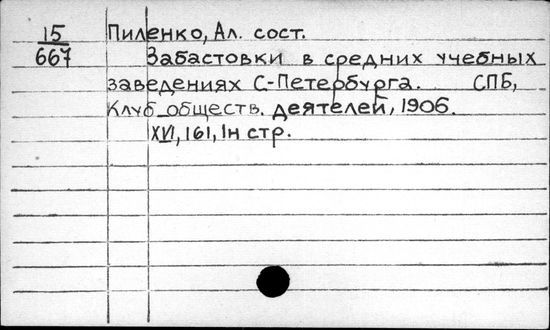 15 Пиленко, Ал. сост.
667 Забастовки в средних учебных
заведениях С-Петербурга. СПБ,
Клуб обществ. деятелей, 1906.
XVI, 161, 1н стр.